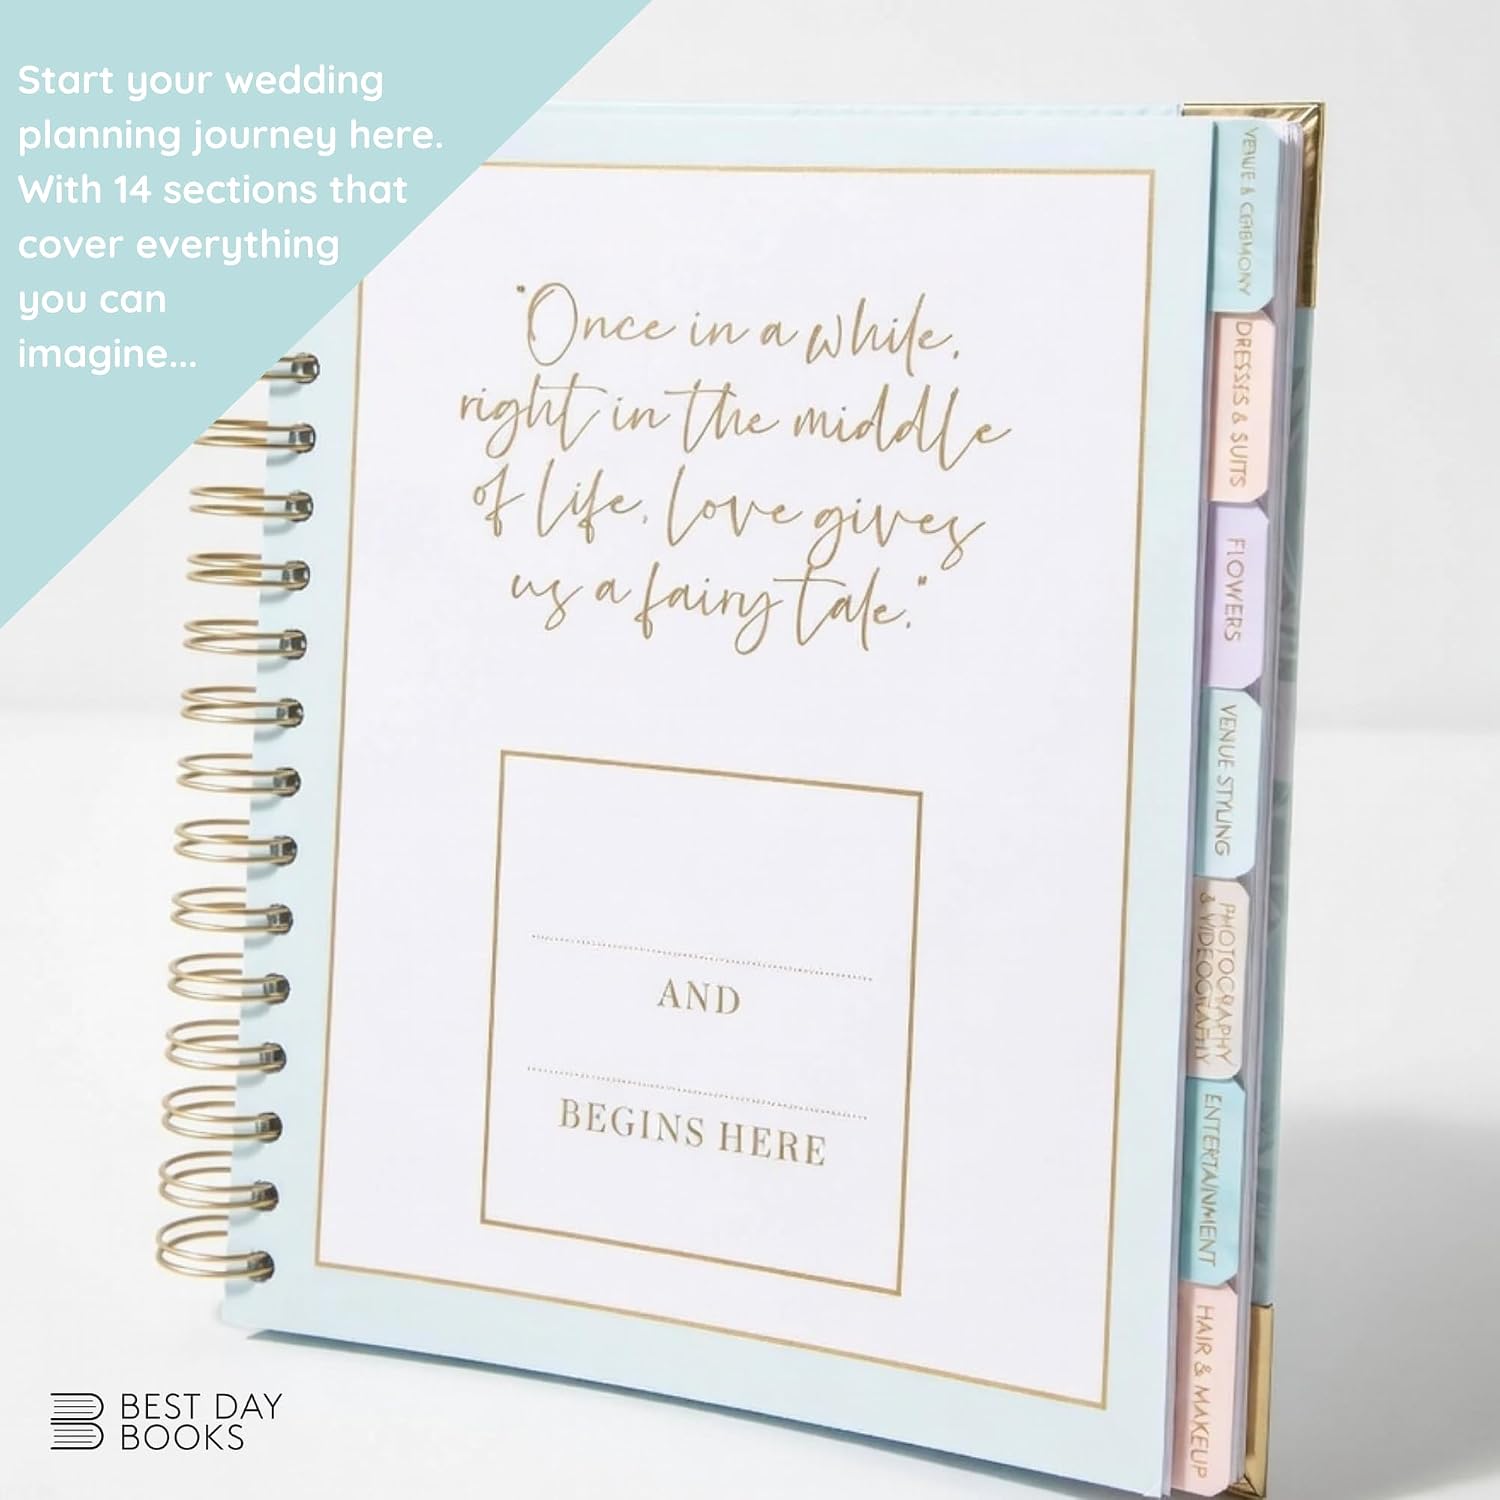 Start your wedding
planning journey here.
With 14 sections that
cover everything
you can
imagine...
"Once in a while,
right in the middle
of life, love gives
us a fairy tale."
AND
BEGINS HERE
VENUE & CEREMONY
DRESSES & SUITS
FLOWERS
VENUE STYLING
PHOTOGRAPHY
& VIDEOGRAPHY
ENTERTAINMENT
HAIR & MAKEUP
BEST DAY
BOOKS